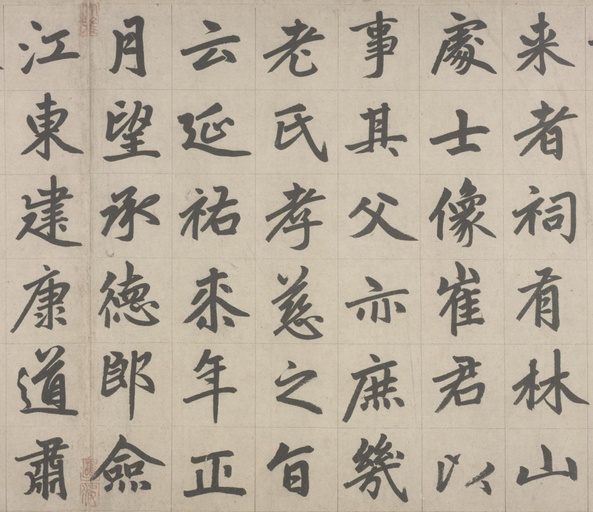 来者祠有林山
處士像崔君以
事其父亦庶幾
老氏孝慈之旨
云延祐桼年正
月望承德郎僉
江東建康道肅